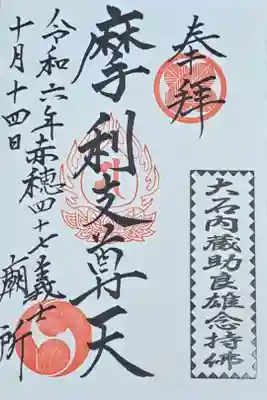 奉拝
大石内蔵助良雄念持佛
摩利支尊天
令和六年赤穂四十七義士廟所
十月十四日